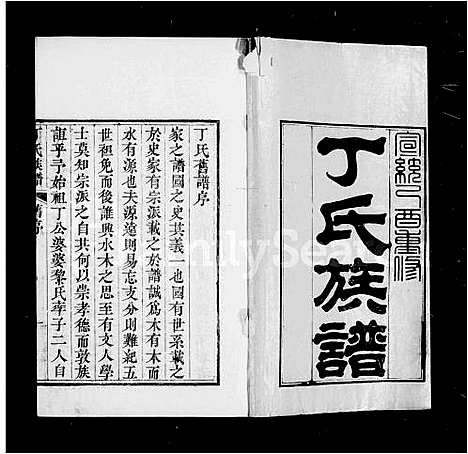 宣統己酉重修
丁氏族譜
丁氏舊譜序
家之譜國之史其義一也國有世系載之
於史家有宗派載之於譜誠爲木有本而
水有源也夫源遠則易忘支分則難紀五
世袒免後興水木之思至有文人學
士莫知宗派之自其何以崇孝德而敦族
誼乎予始祖丁公婆婆黎氏率子二人自
丁氏族譜 舊序